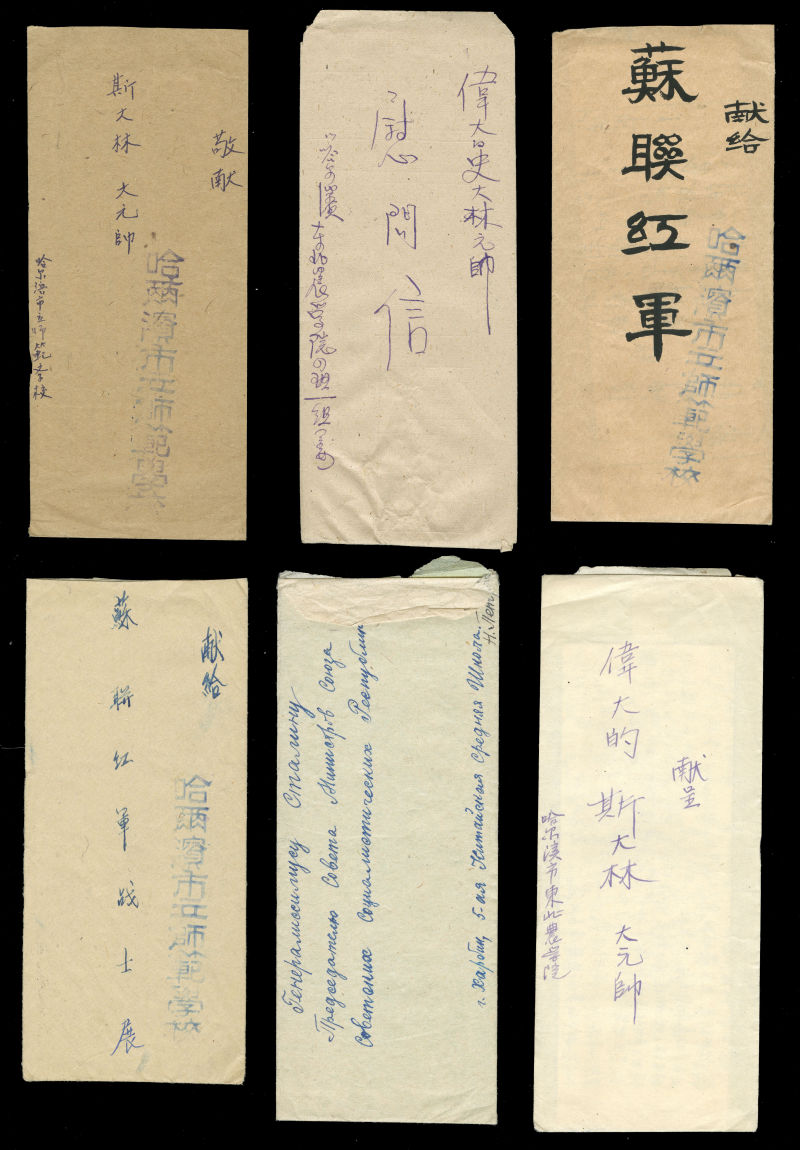 敬献
斯大林 大元帥
哈尔滨市立师範学校
哈爾濱市立師範學校
偉大的史大林元帥
慰問信
献给
蘇聯紅軍
哈爾濱市立師範學校
献给
蘇联红軍战士 展
哈爾濱市立師範學校
Генералиссимусу Сталину
Председателю Совета Министров Союза
Советских Социалистических Республик
г. Харбин, 5-ая Китайская Средняя Школа.
献呈
偉大的 斯大林 大元帥
哈尔濱市東北農学院